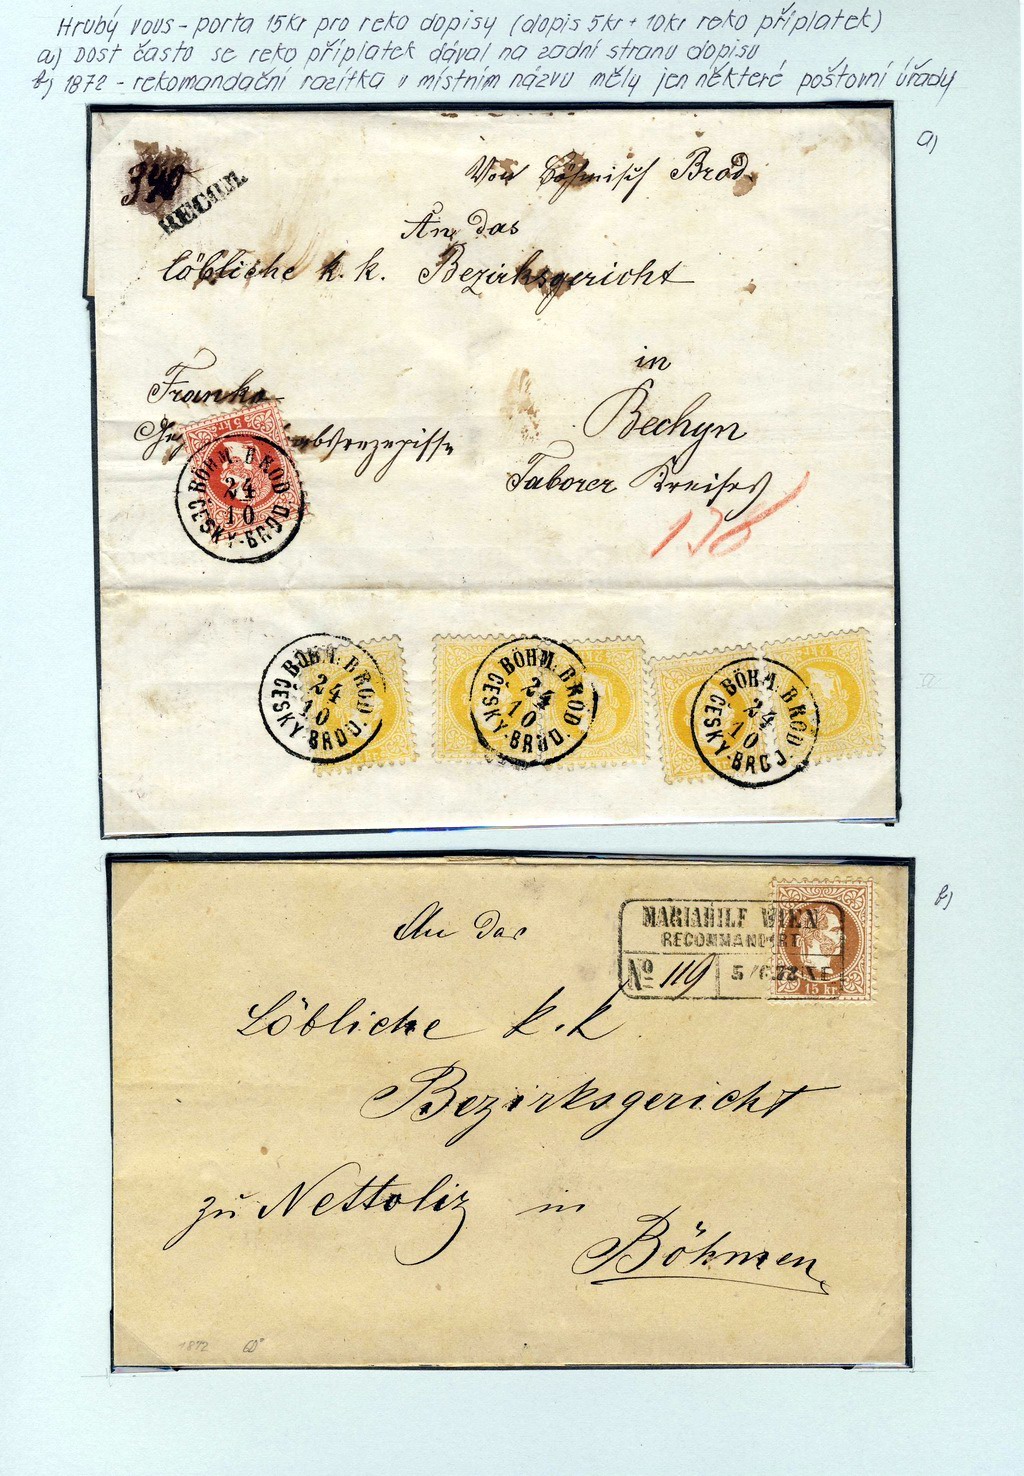 Hrubý vous - porta 15kr pro reko dopisy (dopis 5kr + 10kr reko příplatek)
a) Dost často se reko příplatek dával na zadní stranu dopisu
b) 1872 - rekomandační razítka s místním názvu měly jen některé poštovní úřady
a)
390
RECOM.
Von Böhmisch Brod.
An das
löbliche k. k. Bezirksgericht
in
Franko
Bechyn
Taborer Kreises
138
5 kr
BÖHM. BROD
24
10
ČESKY-BROD.
BÖHM. BROD
24
10
ČESKY-BROD.
BÖHM. BROD
24
10
ČESKY-BROD.
BÖHM. BROD
24
10
ČESKY-BROD.
2 kr
b)
MARIAHILF WIEN
RECOMMANDIRT
No 119
15 kr.
An das
Löbliche k. k
Bezirksgericht
zu Nettolitz in
Böhmen
1872